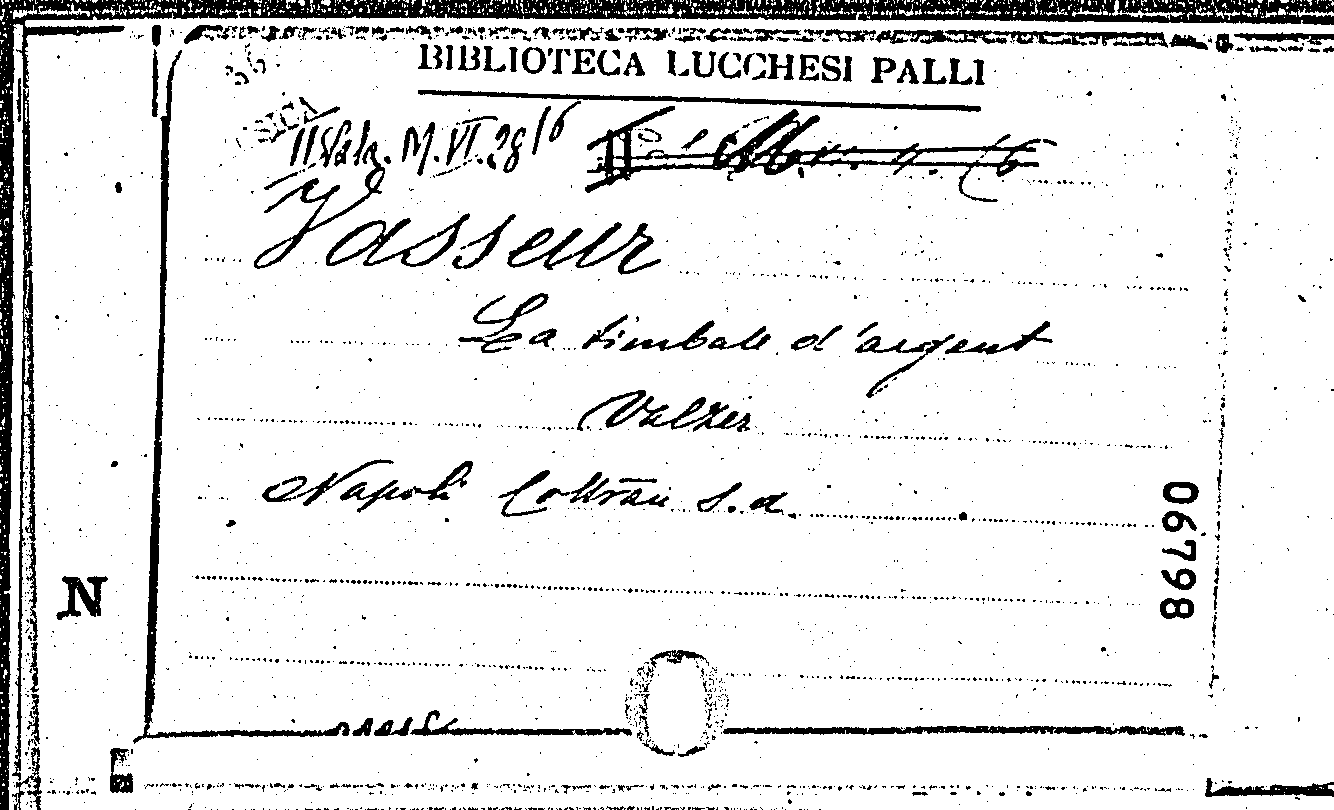 BIBLIOTECA LUCCHESI PALLI
SICA
II Sala. M. VI. 28 16
Vasseur
La timbale d'argent
Valzer
Napoli Cottrau s.d.
06798
N